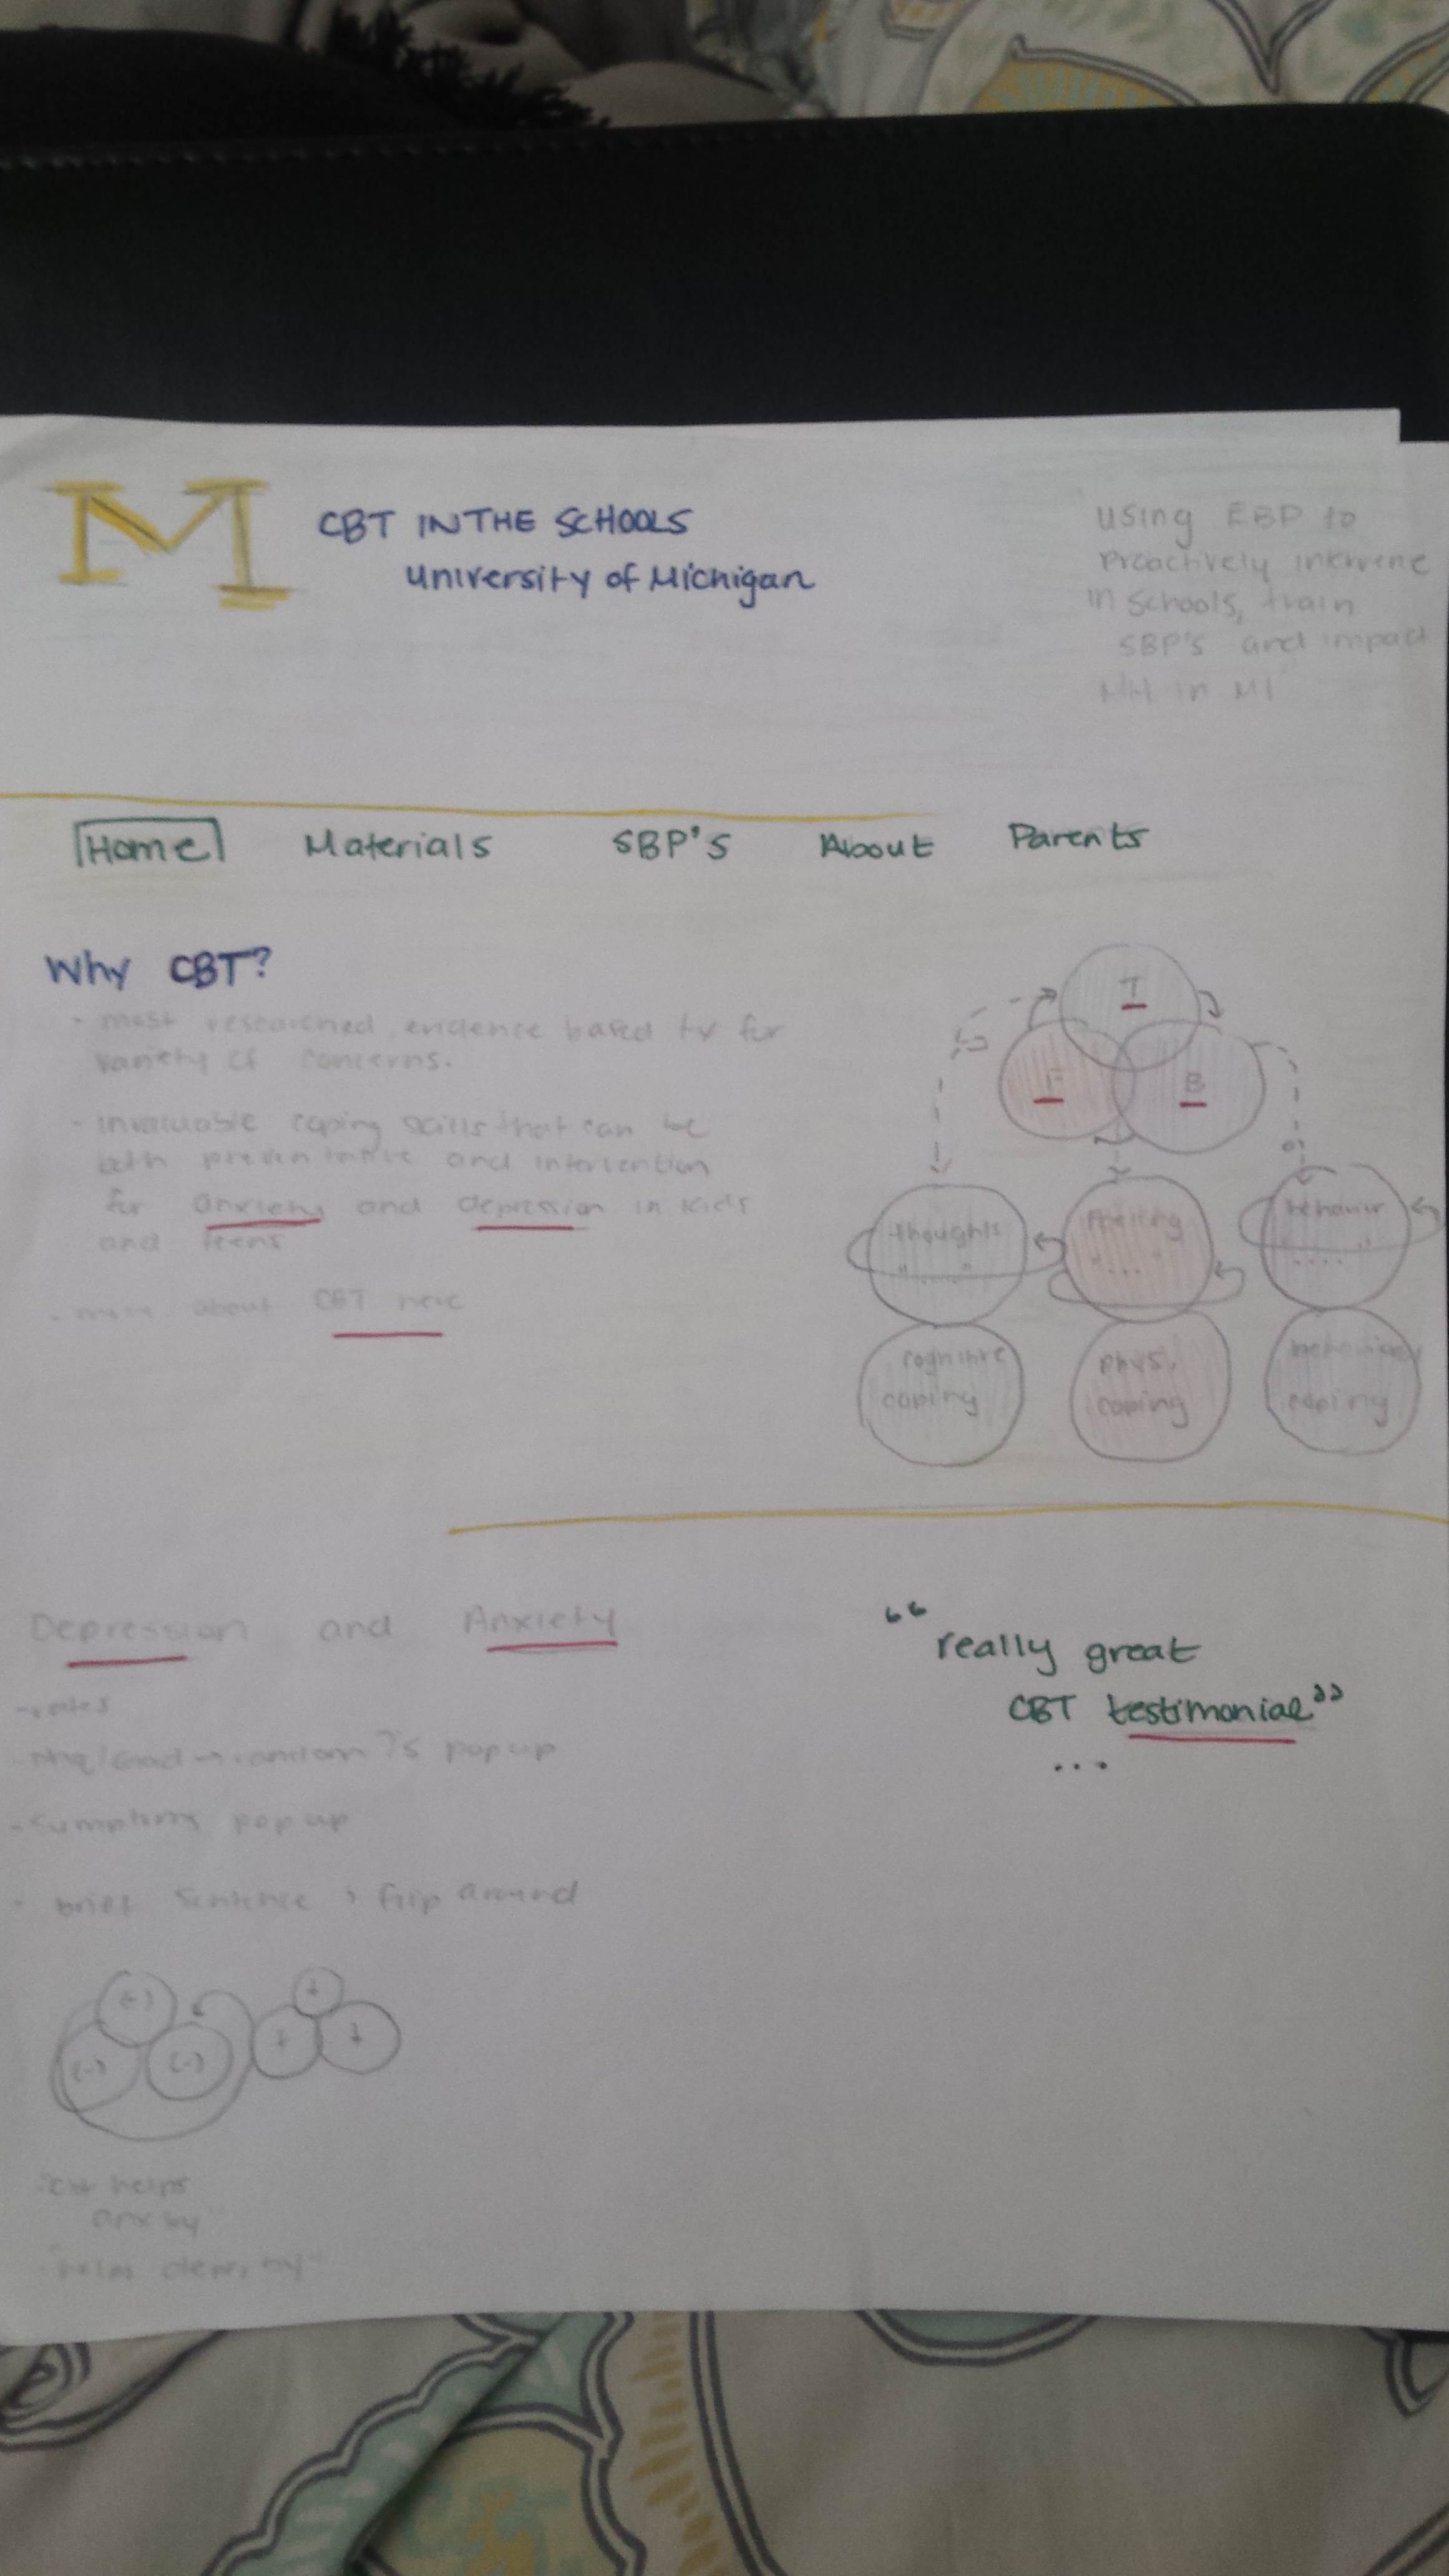 M
CBT IN THE SCHOOLS
University of Michigan
using EBP to
proactively intervene
in schools, train
SBP's and impact
MH in MI
Home Materials SBP's About Parents
Why CBT?
- most researched, evidence based tx for
variety of concerns.
- invaluable coping skills that can be
both preventative and intervention
for anxiety and depression in kids
and teens
- more about CBT here
T
F B
thoughts feeling behavior
"....." "...." ....."
cognitive phys. 
coping coping coping
Depression and Anxiety
- rates
- phq/Gad → random ?'s pop up
- symptoms pop up
- brief sentence + flip around
"really great
CBT testimonial"
...
(-) +
(-) (-) + +
- CBT helps
anx by
- "helps depr, by"